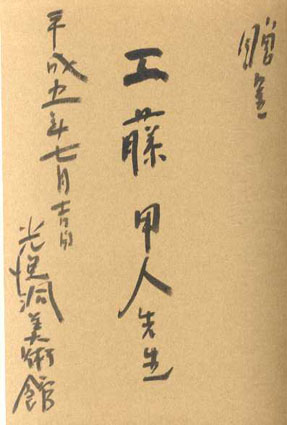 贈呈
工藤甲人先生
平成五年七月吉日
光悦洞美術館